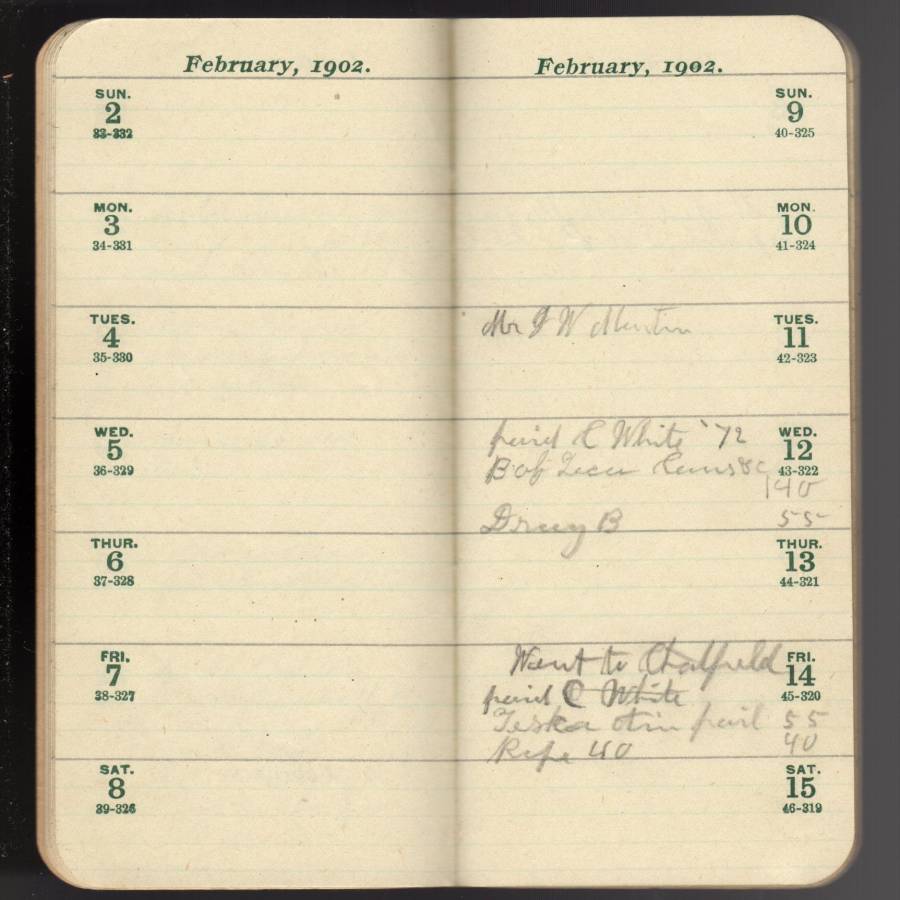 February, 1902.
SUN.
2
33-332
MON.
3
34-331
TUES.
4
35-330
WED.
5
36-329
THUR.
6
37-328
FRI.
7
38-327
SAT.
8
39-326
February, 1902.
SUN.
9
40-325
MON.
10
41-324
Mr J W Martin
TUES.
11
42-323
paid C White 72
WED.
12
B of
43-322
140
55
THUR.
13
44-321
Went to Chatfield
FRI.
14
paid C White
45-320
Teska 55
Rope 40
40
SAT.
15
46-319